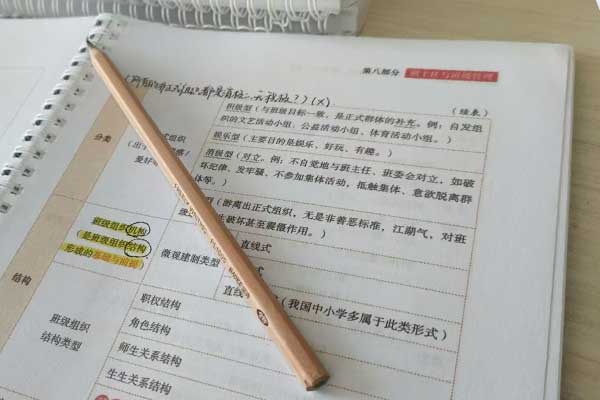 第八部分 班主任与班级管理
(续表)
都是消极、
(×)
分类
积极型(与班级目标一致,是正式群体的补充。例:自发组
织的文艺活动小组、公益活动小组、体育活动小组。)
娱乐型(主要目的是娱乐、好玩、有趣。)
消极型(对立。例:不自觉地与班主任、班委会对立,如破
坏纪律、发牢骚、不参加集体活动,抵触集体、意欲脱离群
体等。)
(游离出正式组织,无是非善恶标准,江湖气,对班
破坏甚至震慑作用。)
结构
班级组织机构
(是班级组织结构
形成的基础与前提)
微观建制类型
直线式
直线
(我国中小学多属于此类形式)
班级组织
结构类型
职权结构
角色结构
师生关系结构
生生关系结构